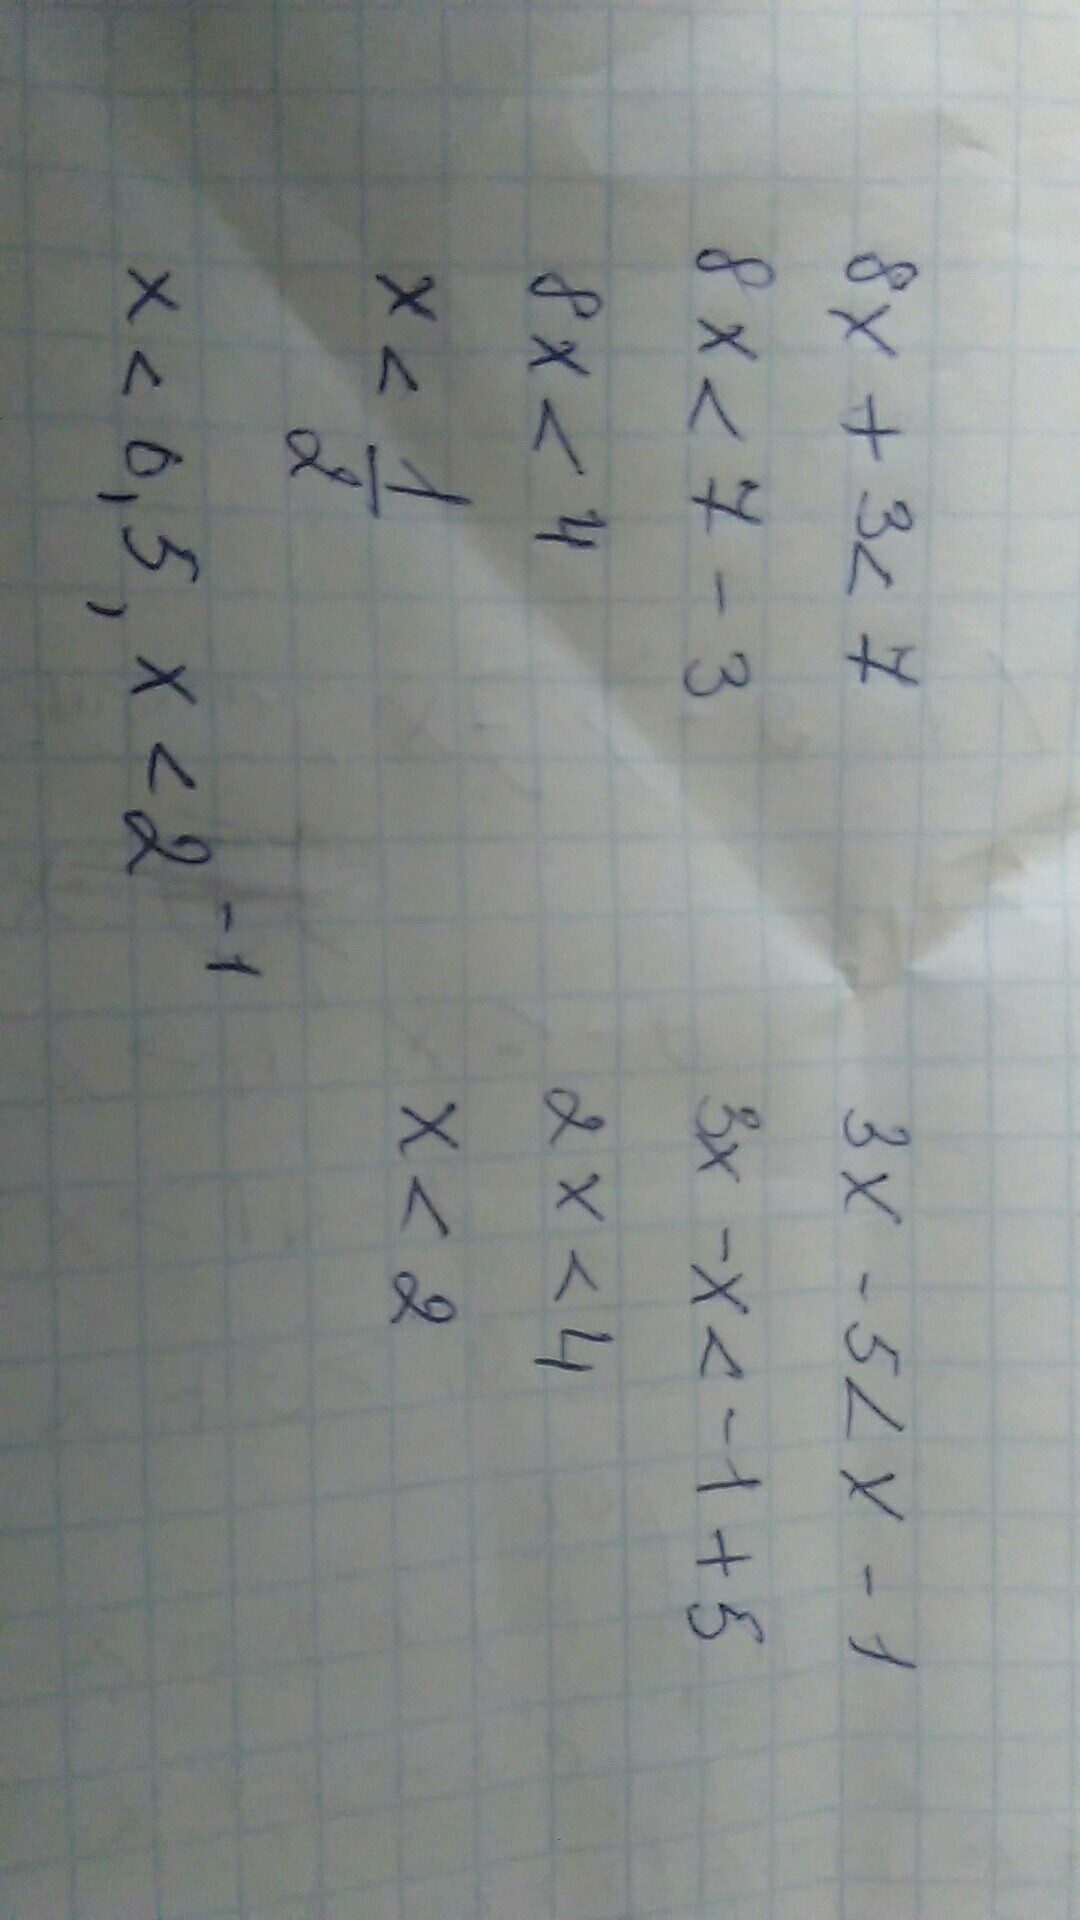 8x + 3 < 7
8x < 7 - 3
8x < 4
x < 1/2
x < 0,5, x < 2⁻¹
3x - 5 < x - 1
3x - x < -1 + 5
2x < 4
x < 2